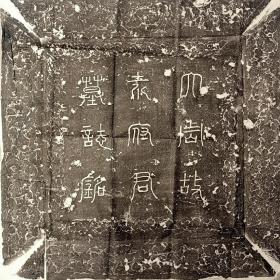 大唐故
袁府君
墓誌銘